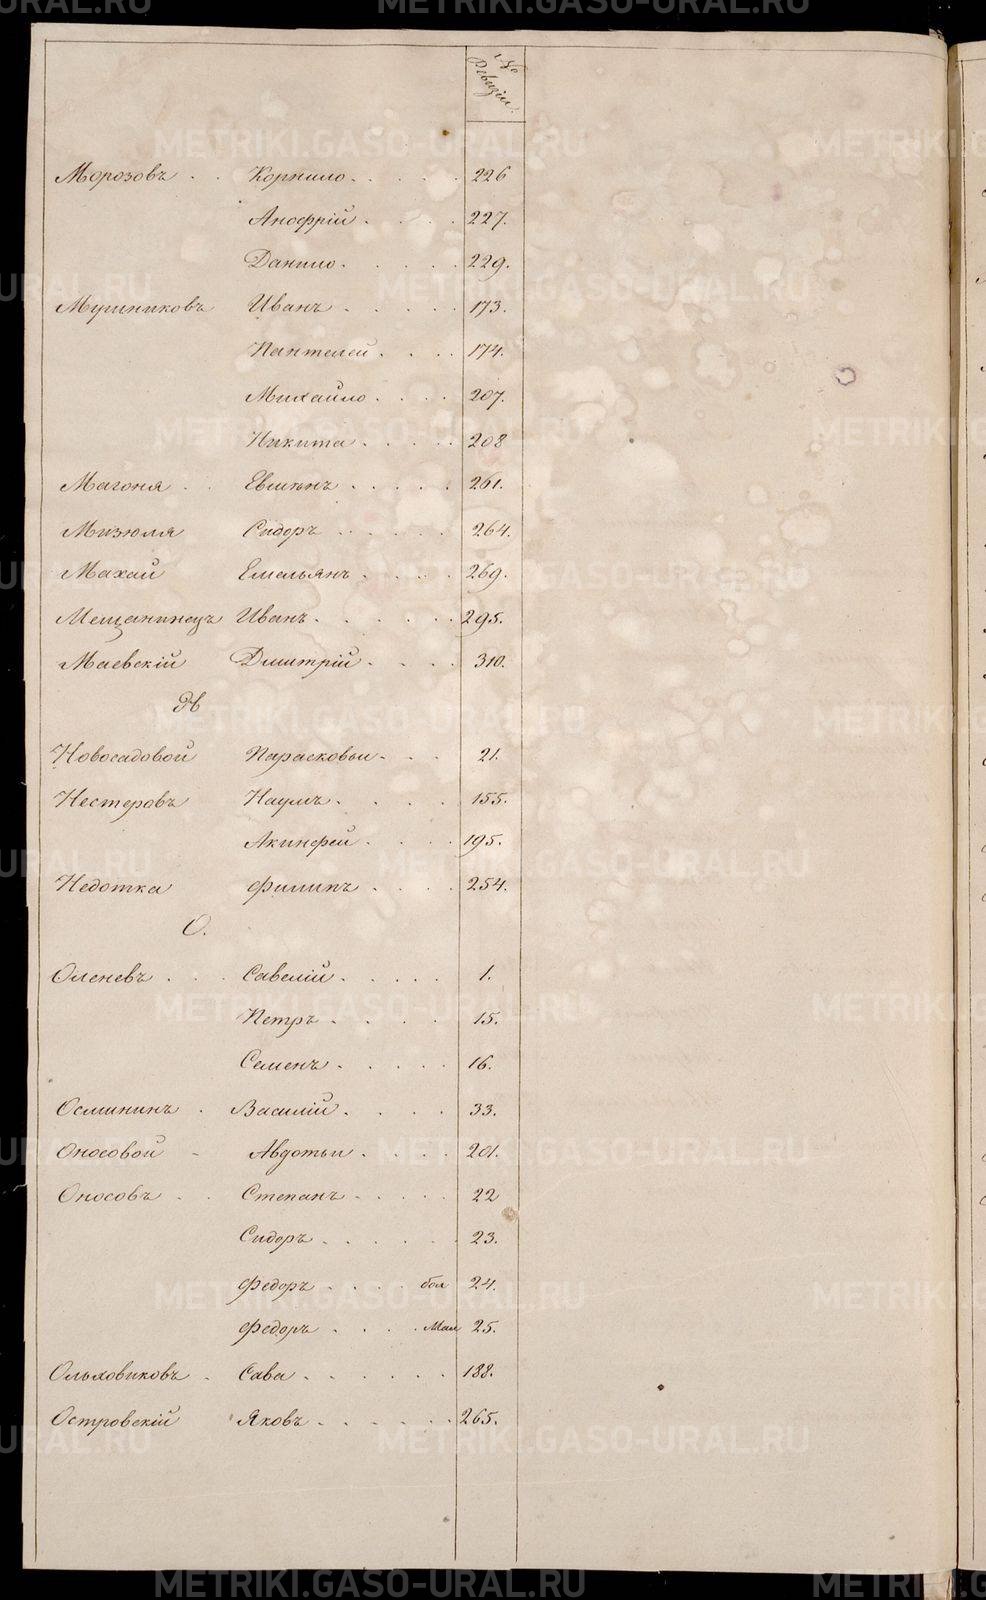 № Ревизіи.
Морозовъ . . Корнило . . . . . 226
Анофрій . . . . 227.
Данило . . . . . 229.
Мушниковъ Иванъ . . . . . 173.
Пантелей . . . . 174.
Михайло . . . . 207.
Никита . . . . . 208
Магоня . . Евшѣнъ . . . . . 261.
Мизюля Сидоръ . . . . . . 264.
Махай Емельянъ . . . . 269.
Мещанинецъ Иванъ . . . . . . 295.
Маевскій Дмитрій . . . . 310.
Н
Новосадовой Парасковьи . . . 21.
Нестеровъ Наумъ . . . . 155.
Акинфей . . . . 195.
Недотка Филипъ . . . . 254.
О.
Оленевъ . . . Савелій . . . . . 1.
Петръ . . . . 15.
Семенъ . . . . . 16.
Осмининъ . Василій . . . . 33.
Оносовой - Авдотьи . . . . 201.
Оносовъ . . Степанъ . . . . . 22
Сидоръ . . . . . . 23.
Федоръ . . . . бол 24.
Федоръ . . . . Мал 25.
Ольховиковъ . Сава . . . . . . 188.
Островскій Яковъ . . . . . . 265.
METRIKI.GASO-URAL.RU